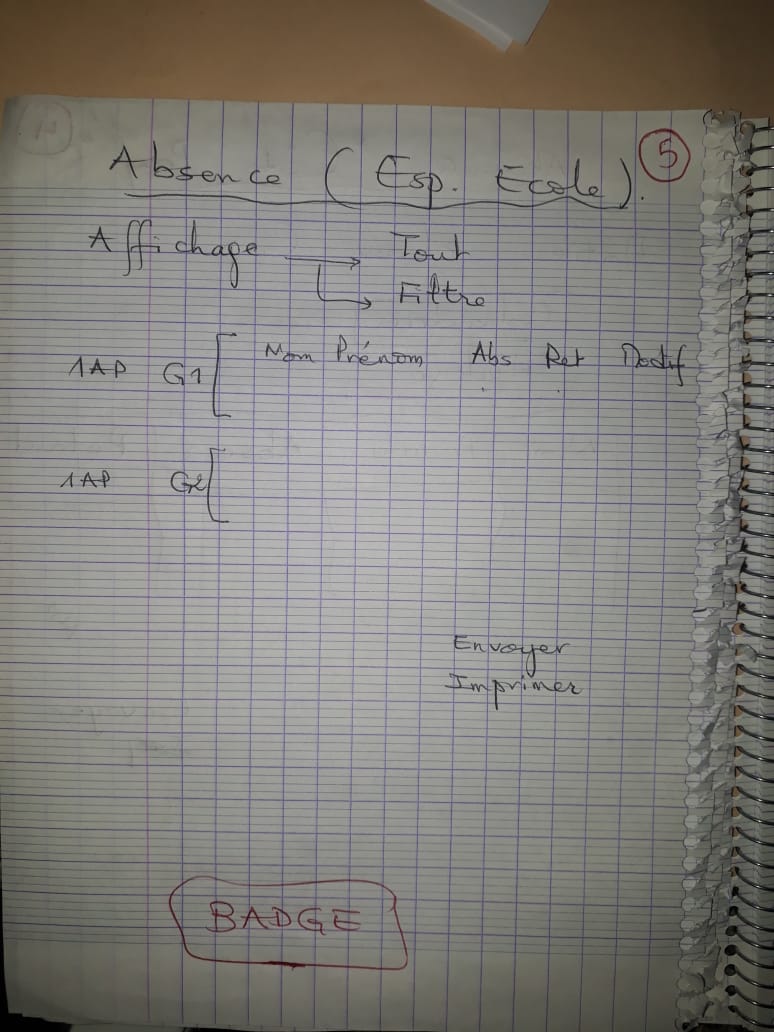 5
Absence (Esp. Ecole).
Affichage → Tout
↳ Filtre
1AP G1 [ Nom Prénom Abs Ret Modif
1AP G2 [
Envoyer
Imprimer
BADGE